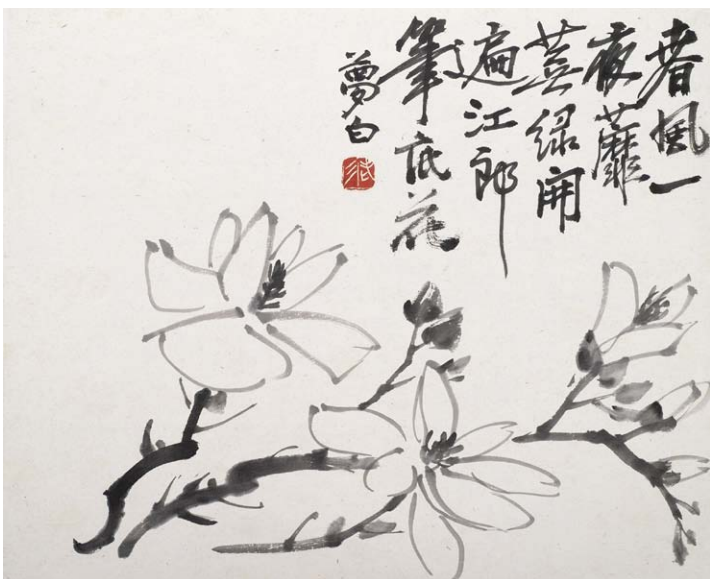 春風一
夜蘼
蕪绿開
遍江郎
筆底花
夢白